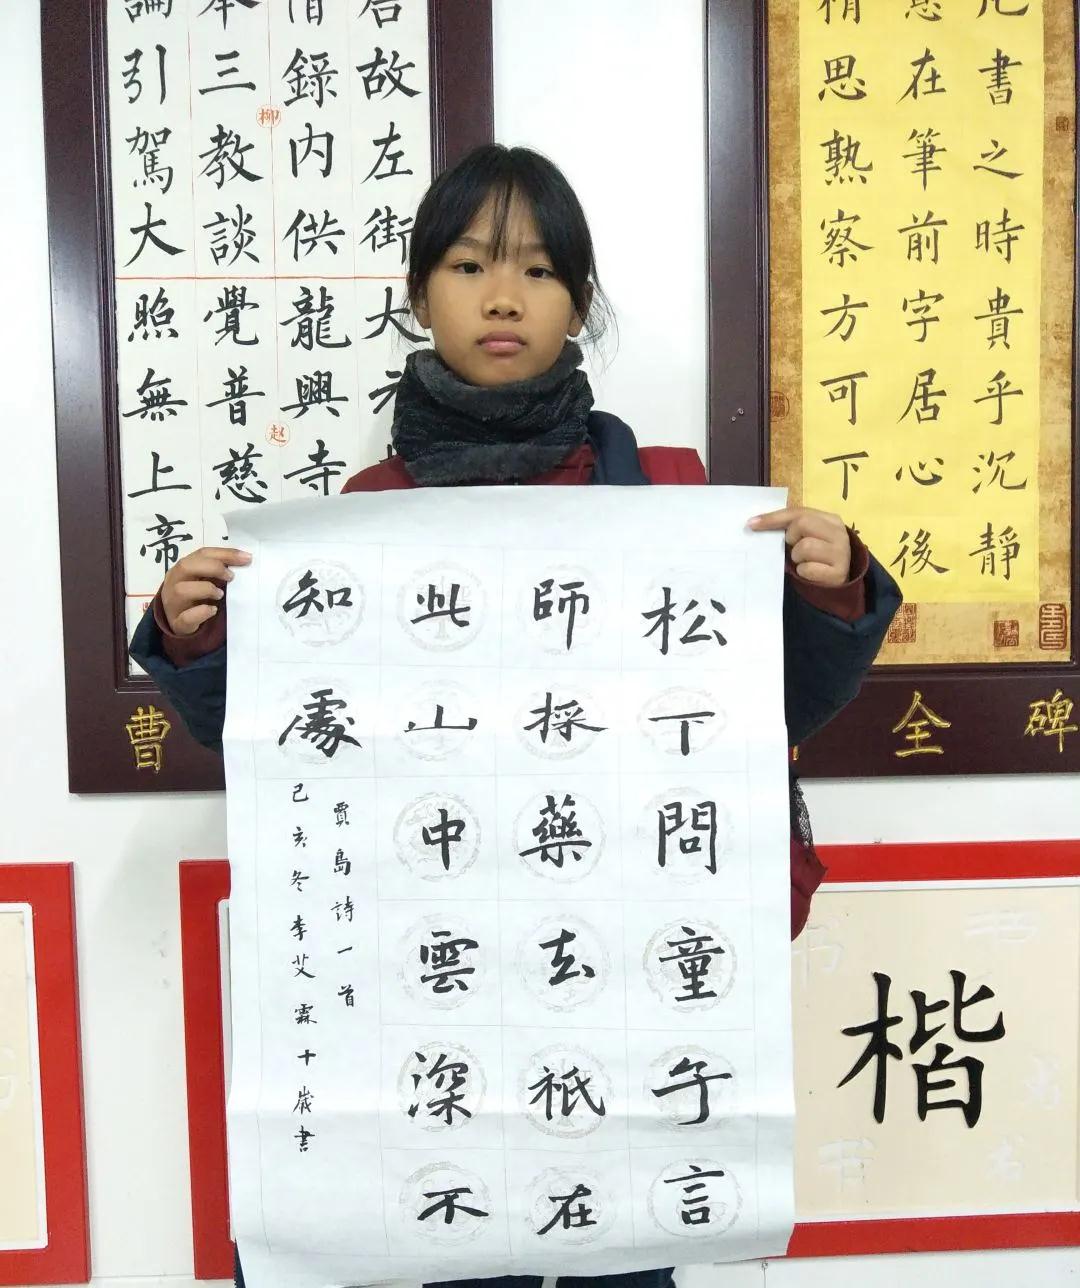 唐故左街
僧錄内供
奉三教談
論引駕大
柳
大元
龍興寺
覺普慈
照無上帝
赵
凡書之時貴乎沉靜
意在筆前字居心後
精思熟察方可下
曹
全碑
松下問童子言
師採藥去祗在
此山中雲深不
知處
賈島詩一首
己亥冬李艾霖十歲書
楷